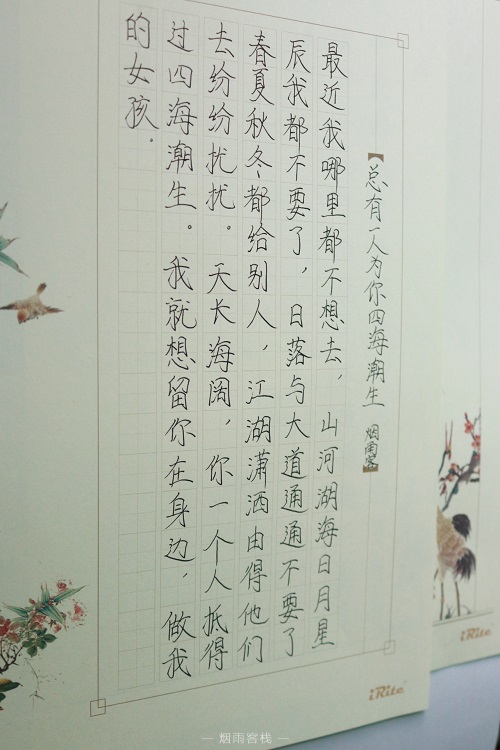 【总有一人为你四海潮生 烟雨客】
最近我哪里都不想去，山河湖海日月星
辰我都不要了，日落与大道通通不要了
春夏秋冬都给别人，江湖潇洒由得他们
去纷纷扰扰。天长海阔，你一个人抵得
过四海潮生。我就想留你在身边，做我
的女孩.
iRite
iRite
— 烟雨客栈 —